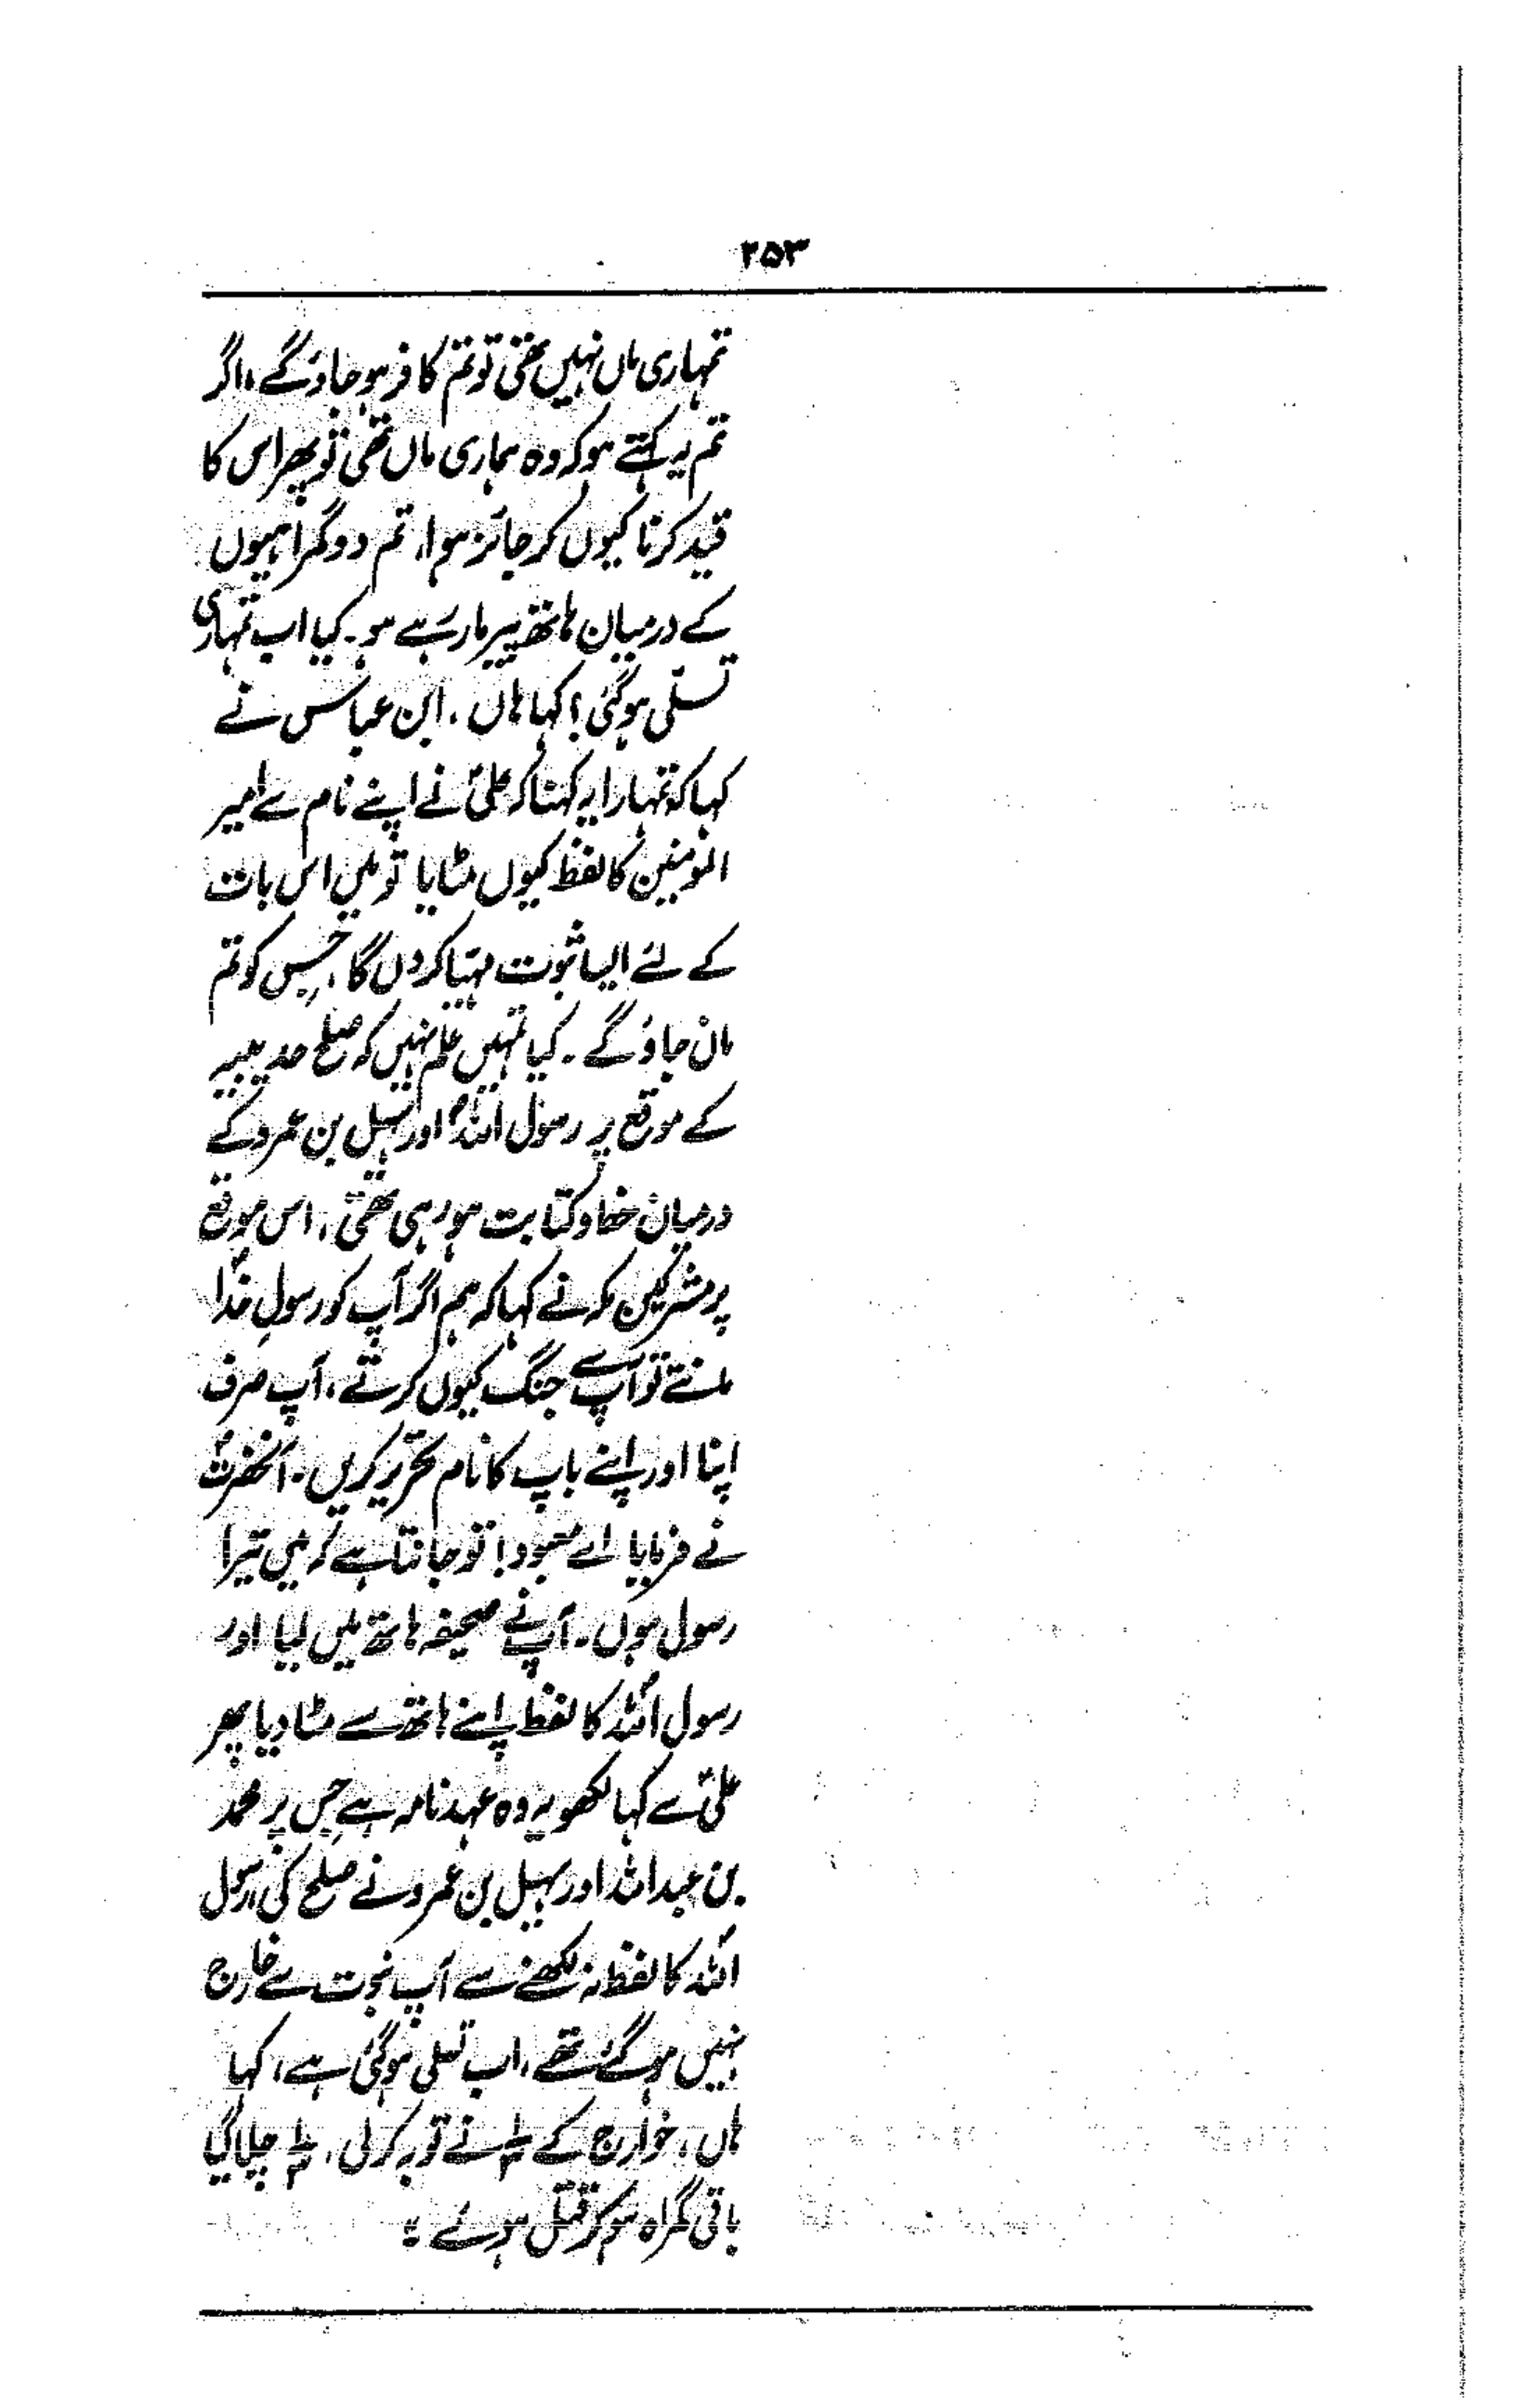 ۲۵۳
تمہاری ماں نہیں تھی تو تم کافر ہو جاؤ گے، اگر
تم یہ کہتے ہو کہ وہ ہماری ماں تھی تو پھر اس کا
قید کرنا کیوں کر جائز ہوا، تم دو گمراہیوں
کے درمیان ہاتھ پیر مار رہے ہو۔ کیا اب تمہاری
تسلّی ہو گئی؟ کہا ہاں۔ ابن عباس نے
کہا کہ تمہارا یہ کہنا کہ علیؑ نے اپنے نام سے امیر
المومنین کا لفظ کیوں مٹایا تو میں اس بات
کے لئے ایسا ثبوت مہیّا کر دوں گا، جس کو تم
مان جاؤ گے۔ کیا تمہیں علم نہیں کہ صلح حدیبیہ
کے موقع پر رسول اللہؐ اور سہیل بن عمرو کے
درمیان خط و کتابت ہو رہی تھی، اس موقع
پر مشرکین مکہ نے کہا کہ ہم اگر آپ کو رسولِ خدا
مانتے تو آپ سے جنگ کیوں کرتے، آپ صرف
اپنا اور اپنے باپ کا نام تحریر کریں۔ آنحضرتؐ
نے فرمایا اے معبود! تو جانتا ہے کہ میں تیرا
رسول ہوں۔ آپ نے صحیفہ ہاتھ میں لیا اور
رسول اللہ کا لفظ اپنے ہاتھ سے مٹا دیا پھر
علیؑ سے کہا لکھو یہ وہ عہد نامہ ہے جس پر محمد
بن عبداللہ اور سہیل بن عمرو نے صلح کی، رسول
اللہ کا لفظ نہ لکھنے سے آپ نبوت سے خارج
نہیں ہو گئے تھے، اب تسلی ہو گئی ہے، کہا
ہاں، خوارج کے نے توبہ کر لی، چلا گیا
باقی گمراہ ہو کر قتل ہوئے ؛